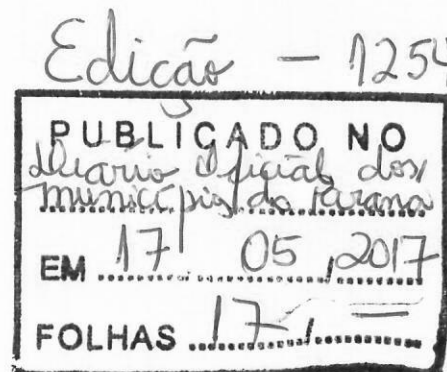 Edição - 1254
PUBLICADO NO
Diário Oficial dos
municípios do Paraná
EM 17 05 2017
FOLHAS 17